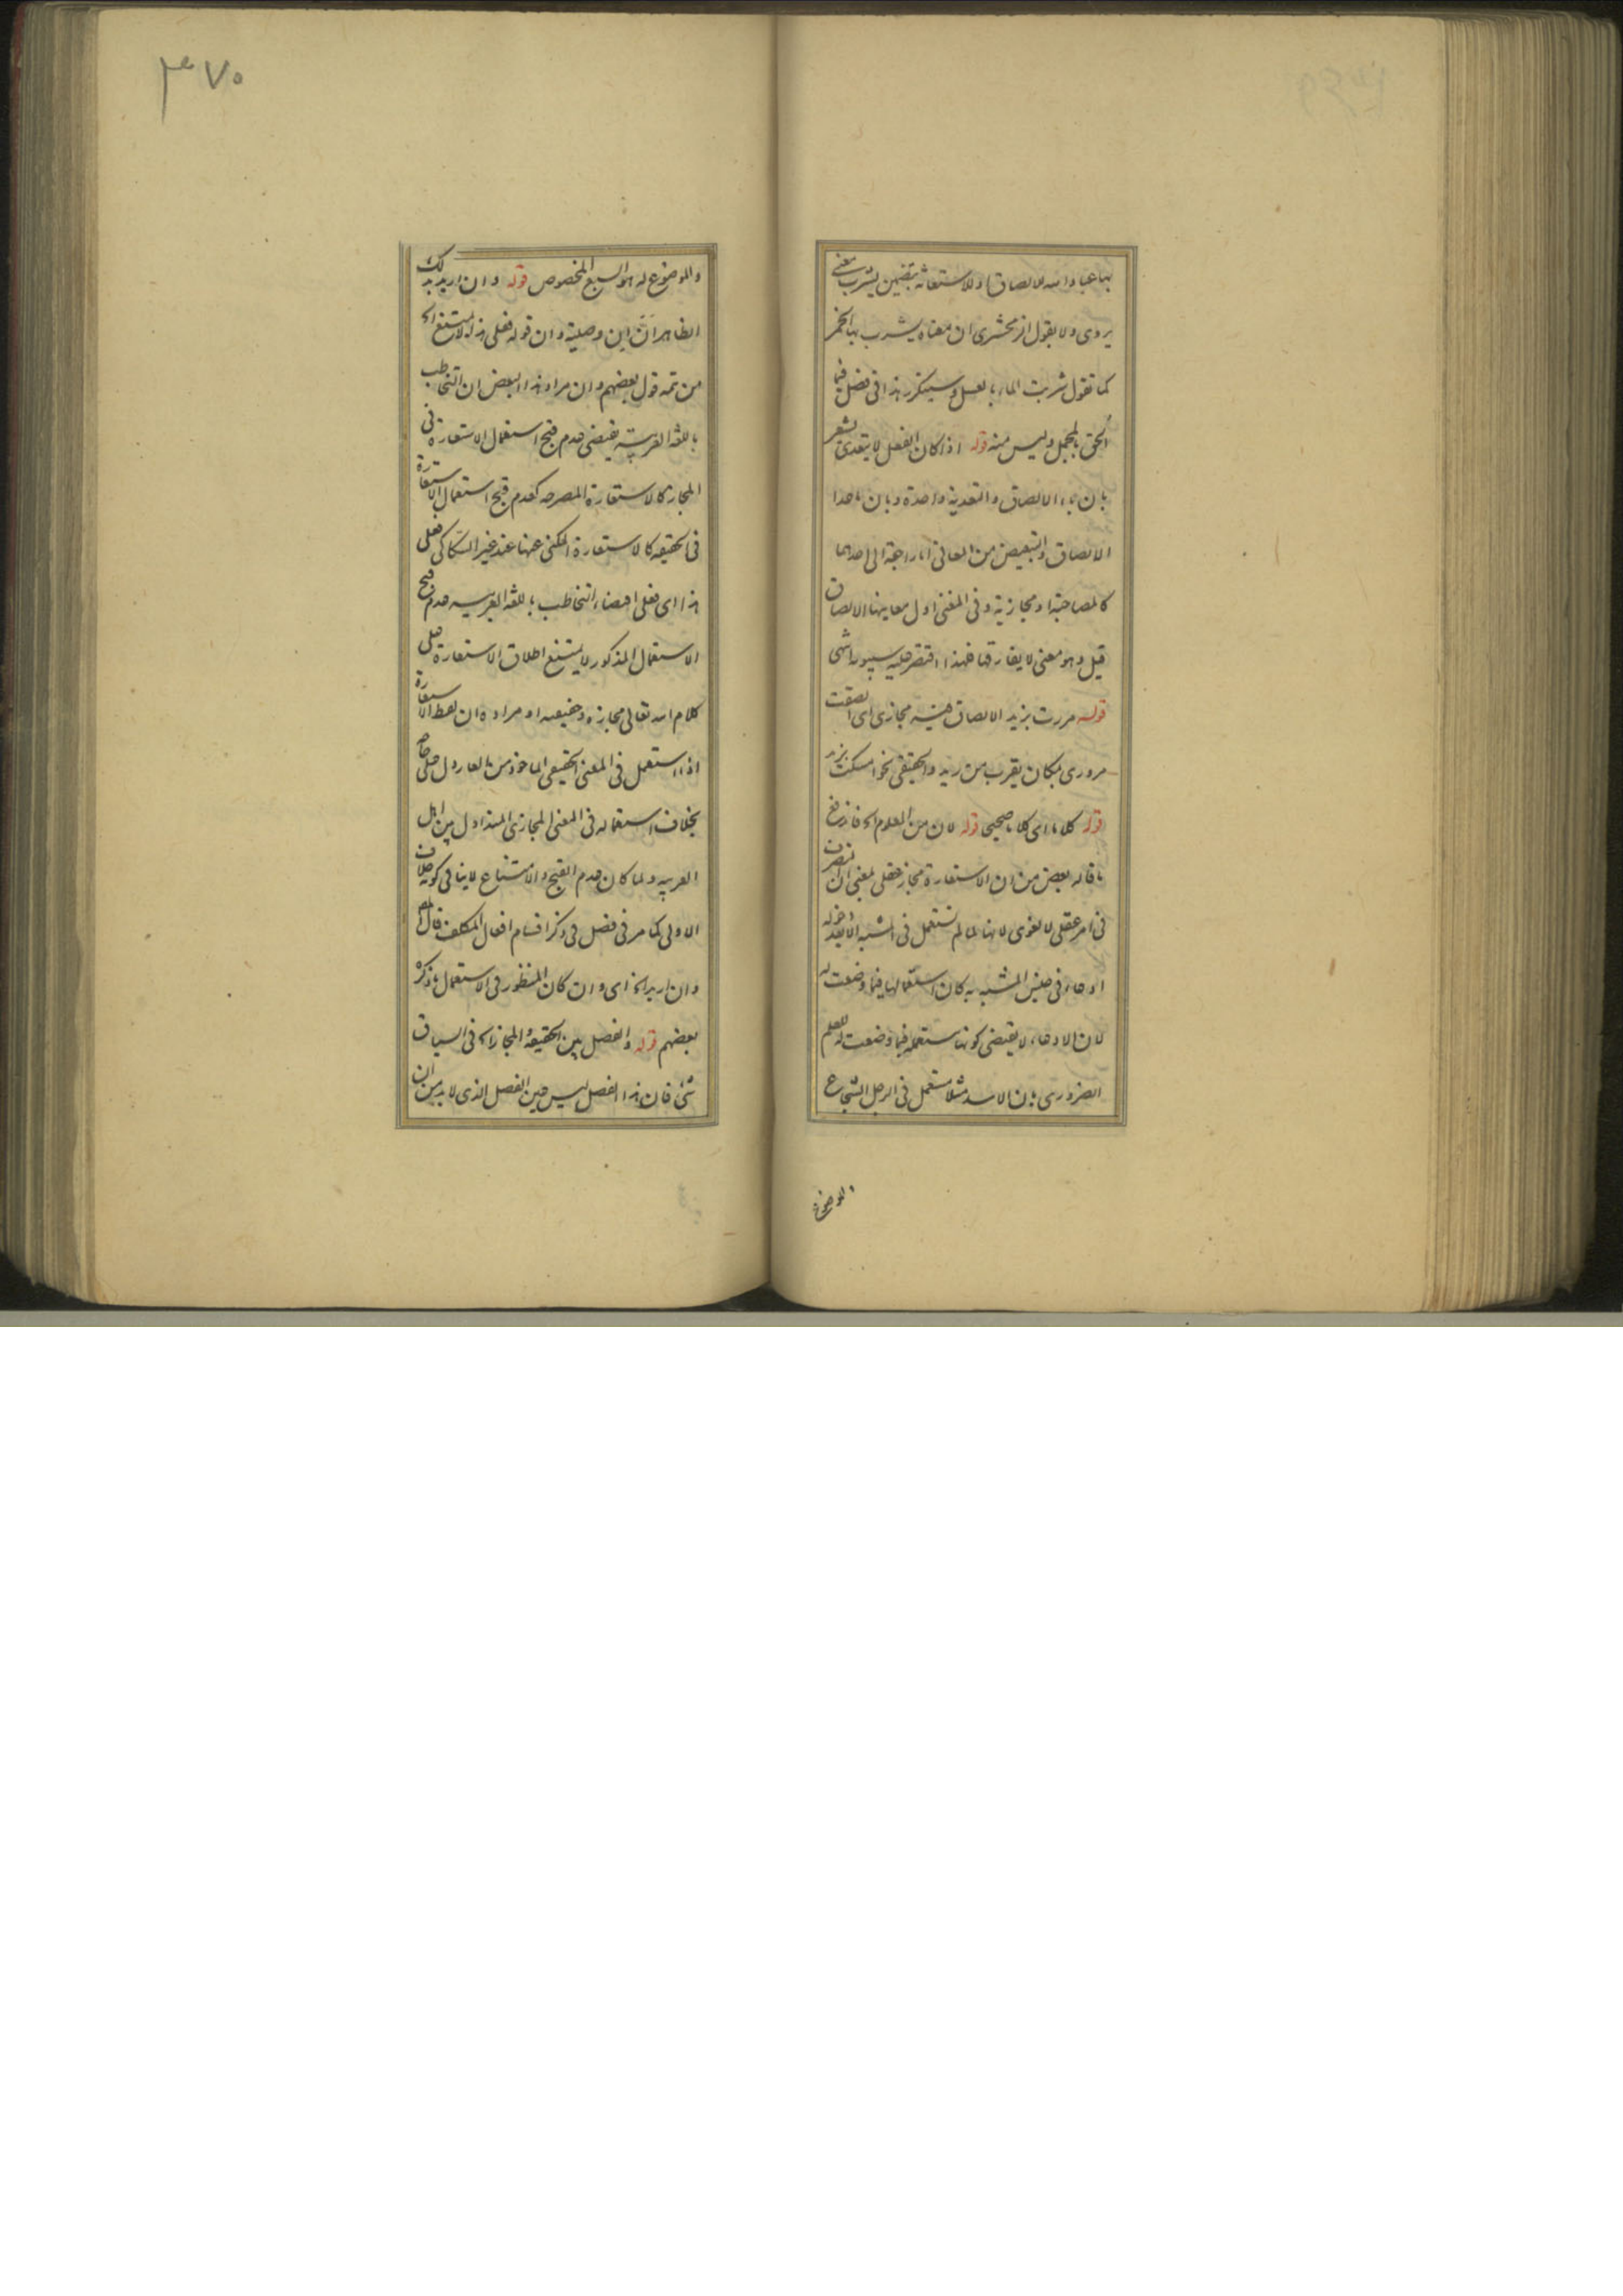 بها عباد الله للالصاق او للاستعانة بتضمين يشرب معنى
يروى ولا يقول الزمخشرى ان معناه يشرب بها الخمر
كما تقول شربت الماء بالعسل وسيتكرر هذا فى فصل فيما
الحق بالمجمل وليس منه قوله اذا كان الفعل لا يتعدى يشعر
بان باء الالصاق والتعدية واحدة وبان ما عدا
الالصاق والتبعيض من المعانى اما راجعة الى احدهما
كالمصاحبة او مجازية وفى المغنى اول معانيها الالصاق
قيل وهو معنى لا يفارقها فلهذا اقتصر عليه سيبويه انتهى
قوله مررت بزيد الالصاق فيه مجازى اى الصقت
مرورى بمكان يقرب من زيد والحقيقى نحو امسكت بزيد
قوله كلاما اى كلاما صحيحا قوله لان من المعلوم الخ فاندفع
ما قاله بعض من ان الاستعارة مجاز عقلى بمعنى ان التصرف
فى امر عقلى لا لغوى لانها لما لم تستعمل فى المشبه الا بعد دخوله
ادعاء فى جنس المشبه به كان استعمالها فيما وضعت له
لان الادعاء لا يقتضى كونها مستعملة فيما وضعت له للعلم
الضرورى بان الاسد مثلا مستعمل فى الرجل الشجاع
والموضوع
٣٧٠
والموضوع له هو السبع المخصوص قوله وان اريد بذلك
الظاهر ان ان وصلية وان قوله فعلى هذا لا يمتنع الخ
من تمه قول بعضهم وان مراد هذا البعض ان التخاطب
باللغة العربية يقتضى عدم قبح استعمال الاستعارة فى
المجاز كالاستعارة المصرحه كعدم قبح استعمال الاستعارة
فى الحقيقه كالاستعارة المكنى عنها عند غير السكاكى فعلى
هذا اى فعلى اقتضاء التخاطب باللغه العربيه عدم قبح
الاستعمال المذكور لا يمتنع اطلاق الاستعارة على
كلام الله تعالى مجازه وحقيقته او مراده ان لفظ الاستعارة
اذا استعمل فى المعنى الحقيقى الماخوذ من العار دل على
بخلاف استعماله فى المعنى المجازى المتداول بين اهل
العربيه ولما كان عدم القبح والامتناع لا ينافى كونه خلاف
الاولى كما مر فى فصل فى ذكر اقسام افعال المكلف قال
وان اريد الخ اى وان كان المنظور فى الاستعمال ما ذكره
بعضهم قوله والفصل بين الحقيقة والمجاز الخ فى السياق
شئ فان هذا الفصل ليس عين الفصل الذى لا بد من ان